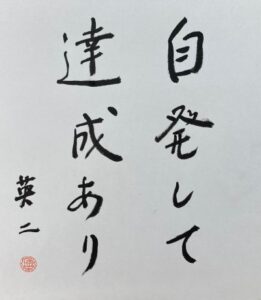 自発して
達成あり
英二